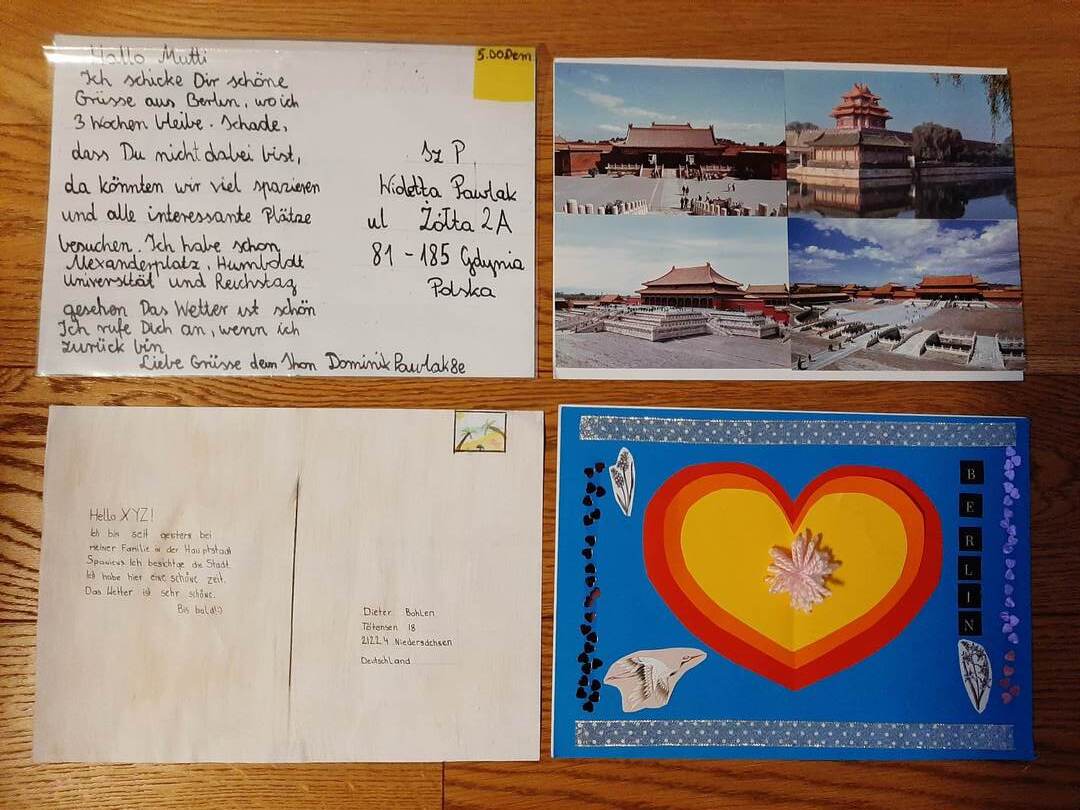 Hallo Mutti
Ich schicke Dir schöne
Grüsse aus Berlin, wo ich
3 Wochen bleibe. Schade,
dass Du nicht dabei bist,
da könnten wir viel spazieren
und alle interessante Plätze
besuchen. Ich habe schon
Alexanderplatz, Humboldt
Universität und Reichstag
gesehen Das Wetter ist schön
Ich rufe Dich an, wenn ich
zurück bin
Liebe Grüsse dein Shon Dominik Pawlak 8e
5.00 Dem
Sz P
Wioletta Pawlak
ul Żółta 2A
81-185 Gdynia
Polska
Hello XYZ!
Ich bin seit gestern bei
meiner Familie in der Hauptstadt
Spaniens. Ich besichtige die Stadt.
Ich habe hier eine schöne Zeit.
Das Wetter ist sehr schöne.
Bis bald!:)
Dieter Bohlen
Tötensen 18
21224 Niedersachsen
Deutschland
BERLIN